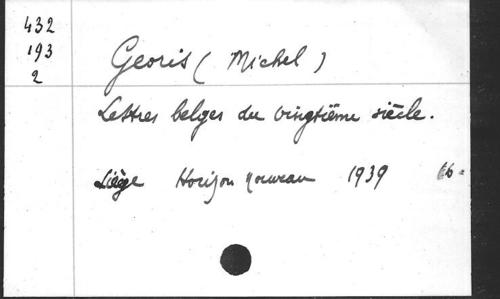 432
193
2
Georis (Michel)
Lettres belges du vingtième siècle.
Liège Horizon nouveau 1939